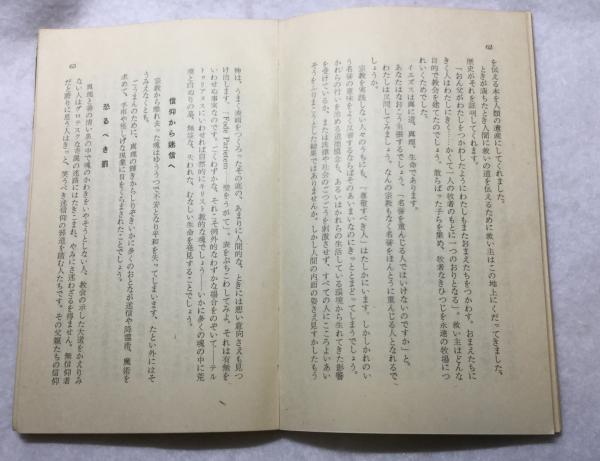 62
を伝える本を人類の遺産にしてくれました。
ときが満ちたとき人間に救いの道を伝えるために救い主はこの地上にくだってきました。
歴史がそれを証明してくれます。
「おん父がわたしをつかわしたようにわたしもまたおまえたちをつかわす。おまえたちに
きく人はわたしにきく……かくて一人の牧者のもとに一つのおりとなる」。救い主はどんな
目的で教会を建てたのでしょう。散らばった子らを集め、牧者なきひつじを永遠の牧場につ
れていくためでした。
イエズスは真に道、真理、生命であります。
あなたはなおこう主張するでしょう。「名誉を重んじる人ではいけないのですか」と。
わたしは反問してみましょう。なんの宗教もなく名誉をほんとうに重んじる人となれるで
しょうか。
宗教を実践しない人々のうちにも、「尊敬すべき人」はたしかにいます。しかしかれのい
う名誉の意味をよく反省するならばそのあいまいなのにきっととまどってしまうでしょう。
かれらの行いを治める道徳観念も、あるいはかれらの生活している環境から生れてきた影響
を受けているか、または法律や社会のごつごうを刺激させず、すべての人にこころよいあい
そうをふりまこうとした結果ではありませんか。しかし人間の内面の姿さえ見すかしたもう
63
神は、うまく表面をつくろったその底の、あまりに人間的な、ときには想い意向さえも見つ
け出します。「Fode Parietem——壁をうがて」。壁をぶちこわしてみよ。それは有無を
いわせぬ事実なのです。「ごくわずかな、それこそ例外的なわずかな場合をのぞいて——テル
トゥリアヌスにいわせれば自然的にキリスト教的な魂でしょう——いかに多くの魂の中に荒
廃と白ありの巣、無秩序、失われた、むなしい生命を発見することでしょう。
信仰から迷信へ
宗教から離れ去った魂はゆううつで不安となり平和を失ってしまいます。たとい外にはそ
うみえなくとも。
ごうまんのために、真理の輝きからしりぞきいかに多くのおとなが迷信や降霊術、魔術を
求めて、手相や怪しげな現象に目をくらまされたことでしょう。
恐るべき罰
真理と善の清い泉の中で魂のかわきをいやそうとしない人、教会の示した大道をかえりみ
ない人はグロテスクな奇異の迷路にはたきこまれ、やみにさ迷わざるを得ません。無信仰者
だと誇りに思う人はきっと、笑うべき迷信仰の邪道を踏む人たちです。その父親たちの信仰